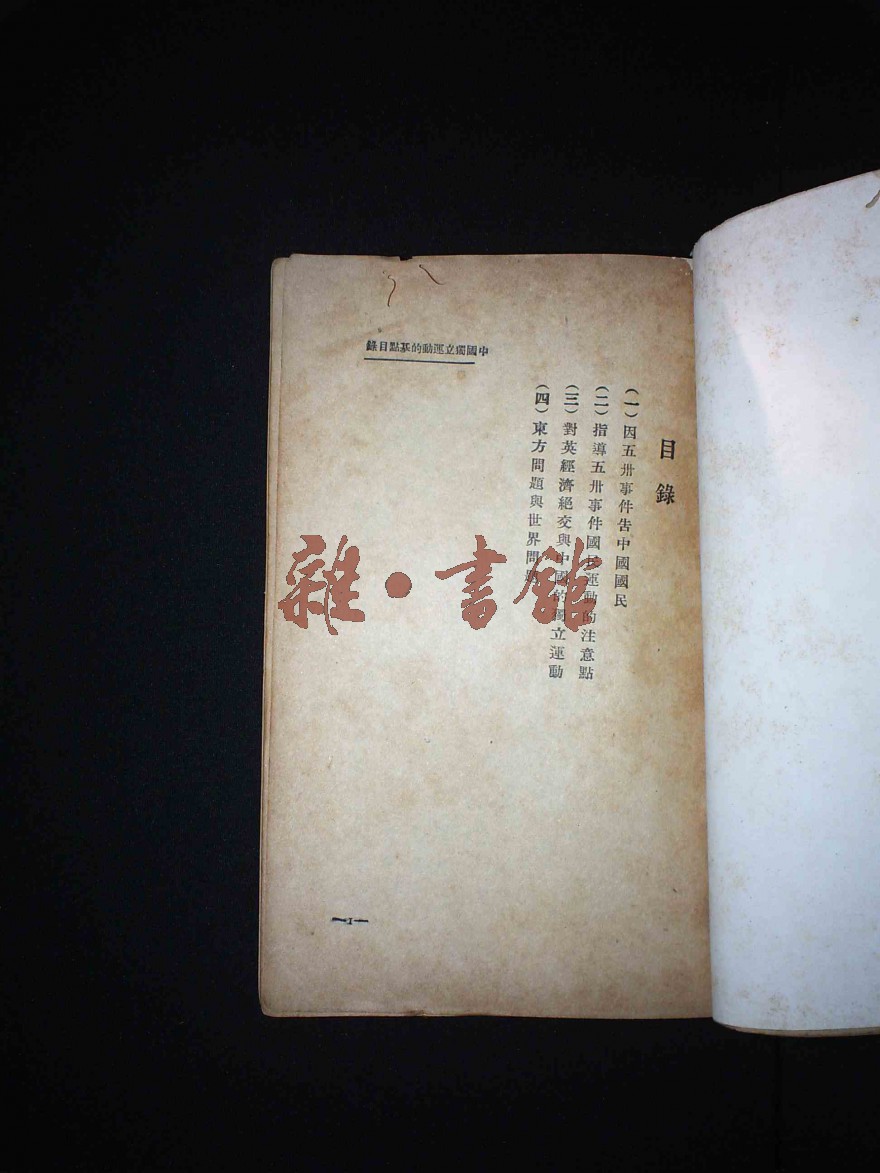 中國獨立運動的基點目錄
目錄
(一)因五卅事件告中國國民
(二)指導五卅事件國民運動的注意點
(三)對英經濟絕交與中國的獨立運動
(四)東方問題與世界問題
1
雜·書館